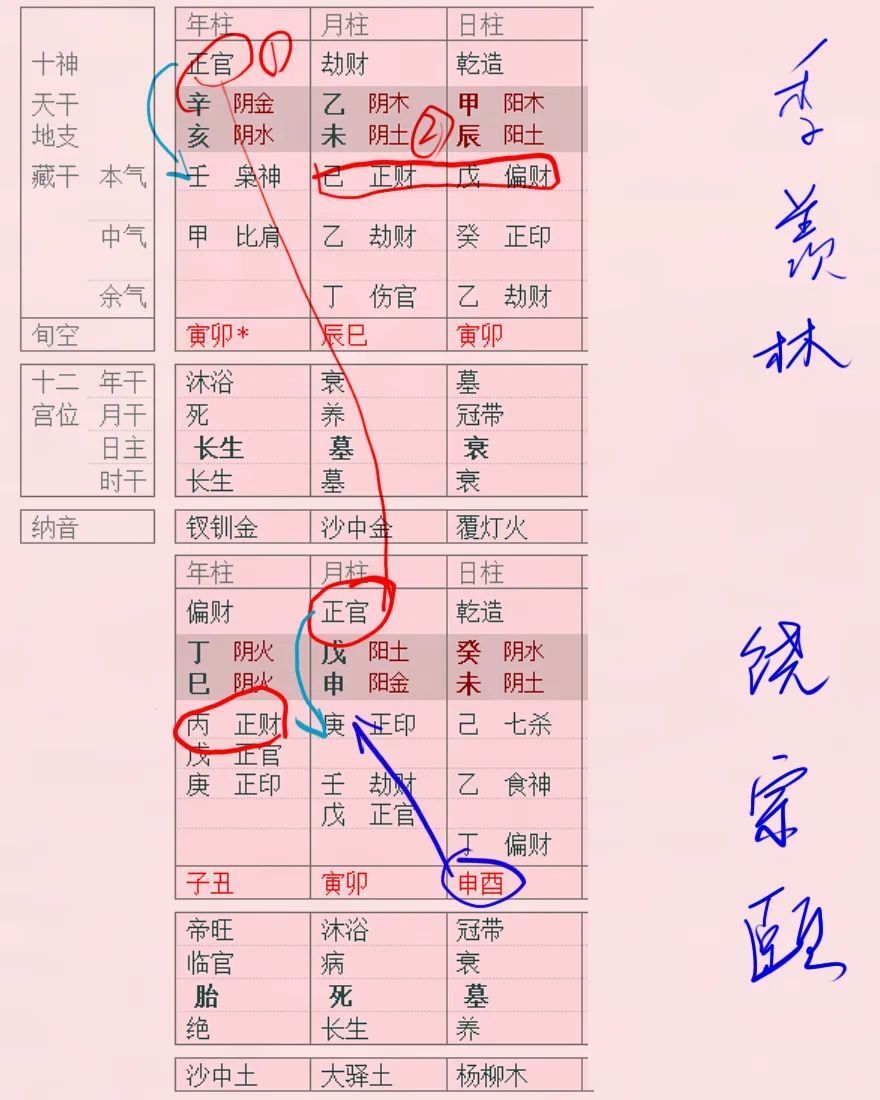 年柱 月柱 日柱
十神 正官 ① 劫财 乾造
天干 辛 阴金 乙 阴木 甲 阳木
地支 亥 阴水 未 阴土 ② 辰 阳土
藏干 本气 壬 枭神 己 正财 戊 偏财
中气 甲 比肩 乙 劫财 癸 正印
余气 丁 伤官 乙 劫财
旬空 寅卯* 辰巳 寅卯
十二 年干 沐浴 衰 墓
宫位 月干 死 养 冠带
日主 长生 墓 衰
时干 长生 墓 衰
纳音 钗钏金 沙中金 覆灯火
季羡林
年柱 月柱 日柱
偏财 正官 乾造
丁 阴火 戊 阳土 癸 阴水
巳 阴火 申 阳金 未 阴土
丙 正财 庚 正印 己 七杀
戊 正官
庚 正印 壬 劫财 乙 食神
戊 正官
丁 偏财
子丑 寅卯 申酉
帝旺 沐浴 冠带
临官 病 衰
胎 死 墓
绝 长生 养
沙中土 大驿土 杨柳木
饶宗颐